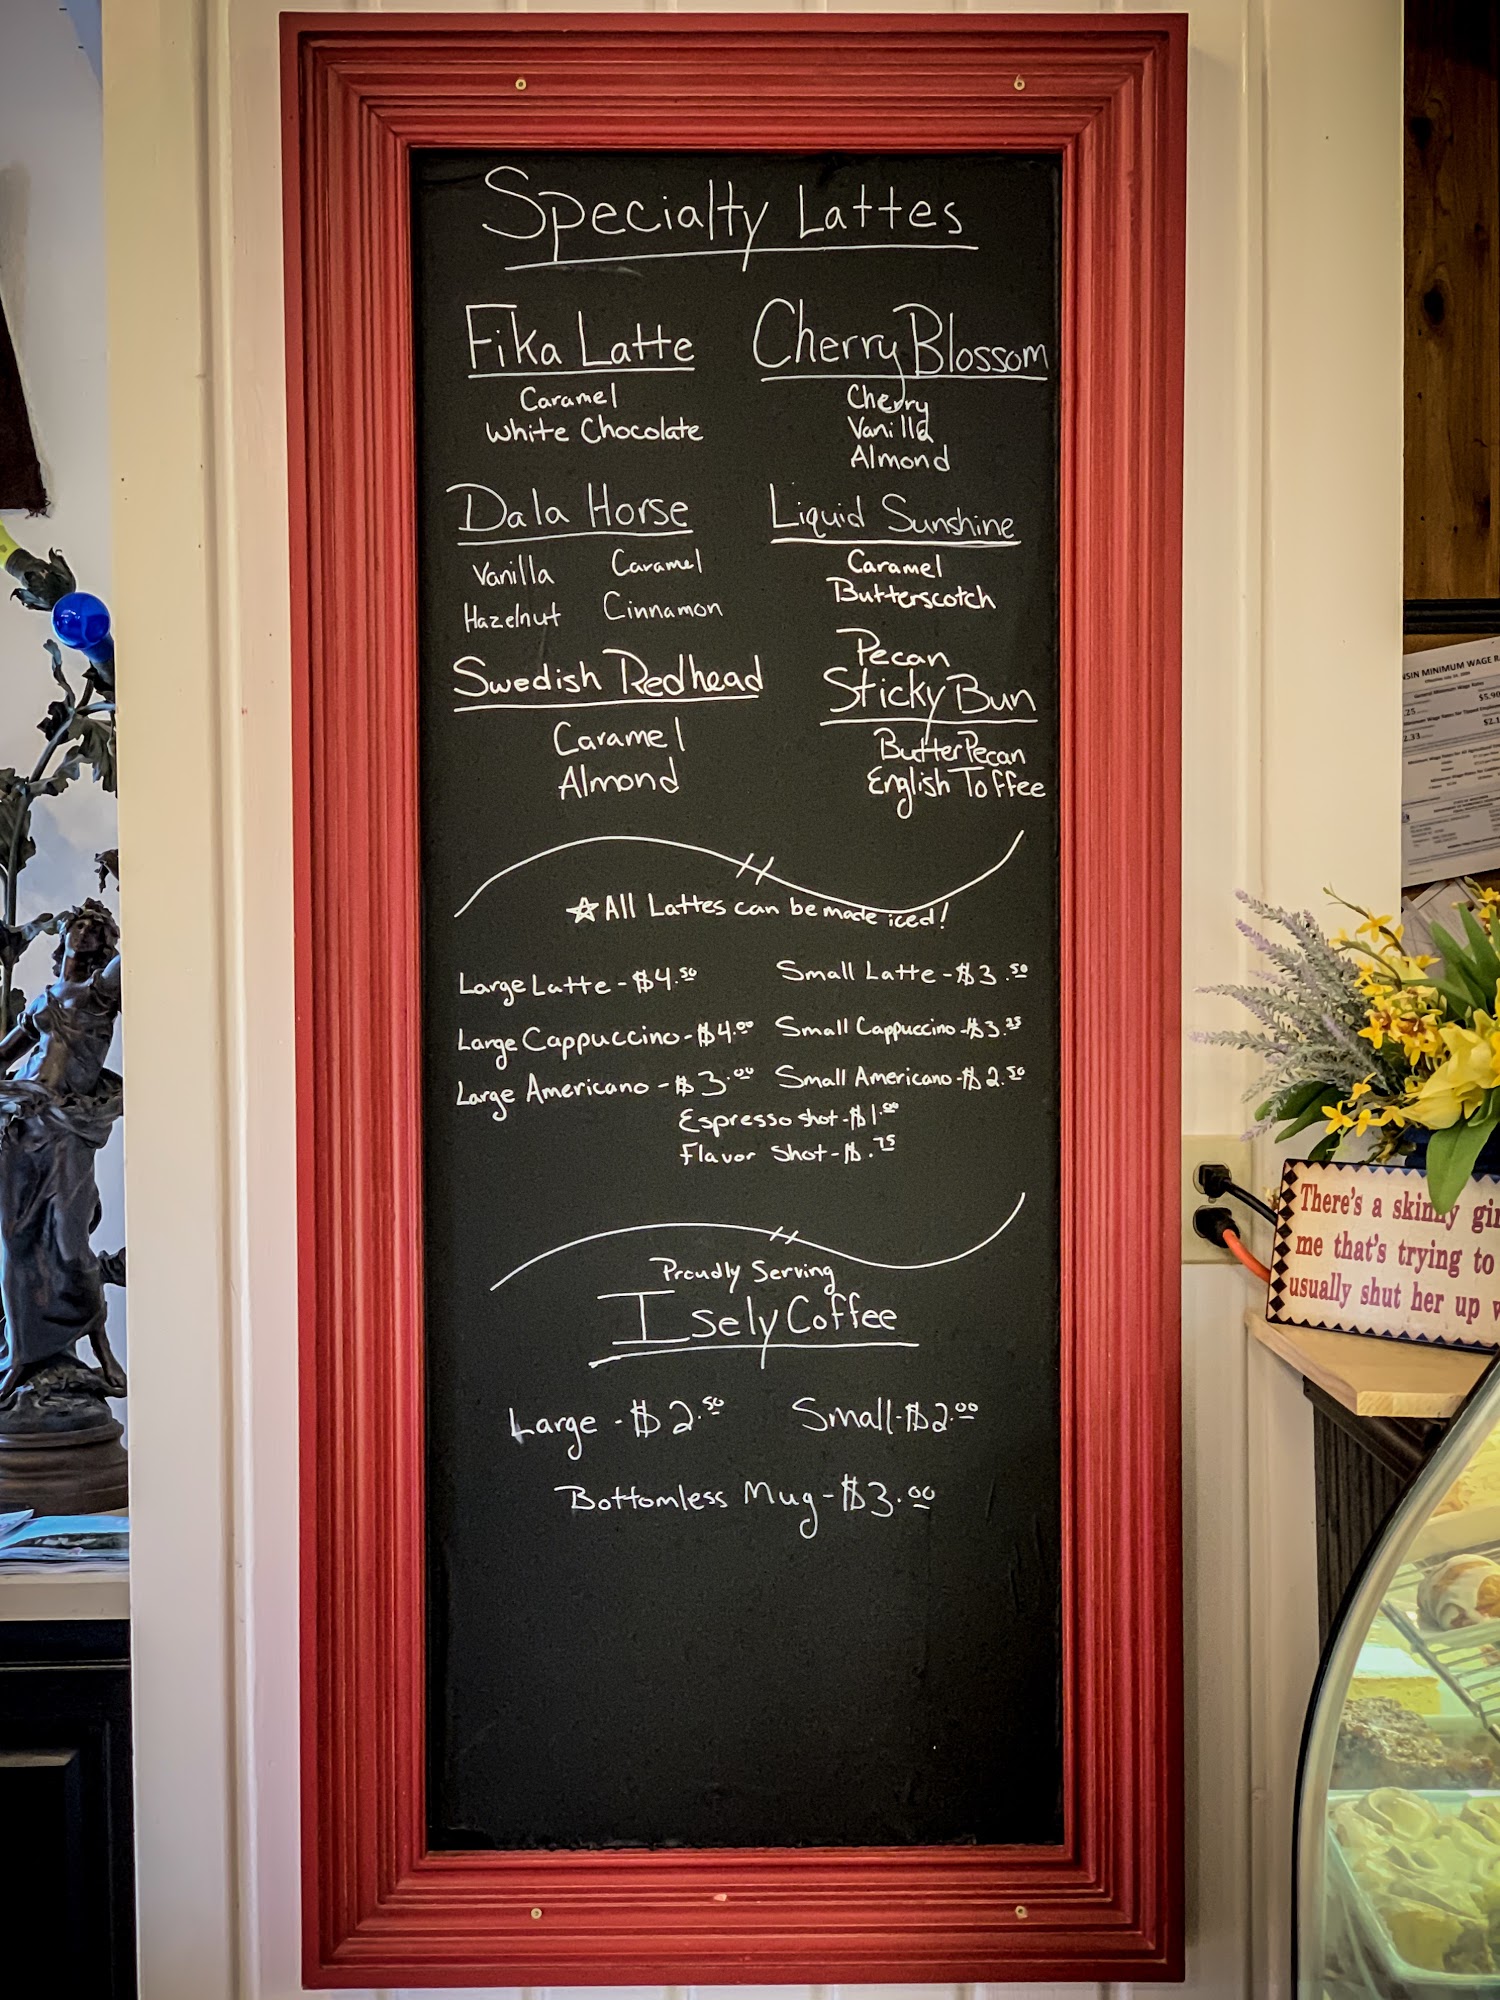 Specialty Lattes
Fika Latte
Caramel
White Chocolate
Cherry Blossom
Cherry
Vanilla
Almond
Dala Horse
Vanilla Caramel
Hazelnut Cinnamon
Liquid Sunshine
Caramel
Butterscotch
Swedish Redhead
Caramel
Almond
Pecan
Sticky Bun
Butter Pecan
English Toffee
☆ All Lattes can be made iced!
Large Latte - $4.50 Small Latte - $3.50
Large Cappuccino - $4.00 Small Cappuccino - $3.25
Large Americano - $3.00 Small Americano - $2.50
Espresso shot - $1.00
Flavor Shot - $.75
Proudly Serving
Isely Coffee
Large - $2.50 Small - $2.00
Bottomless Mug - $3.00
NSIN MINIMUM WAGE
There's a skinny gir
me that's trying to
usually shut her up